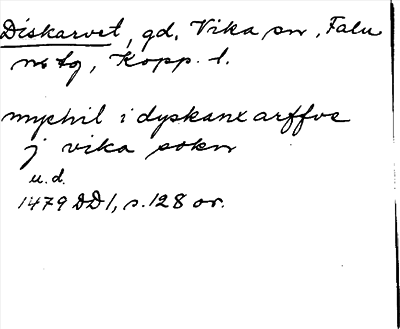 Diskarvet, gd, Vika sn, Falu
ns tg, Kopp. l.
mychil i dyskanx arffve
j vika sokn
u.d.
1479 DD1, s. 128 or.